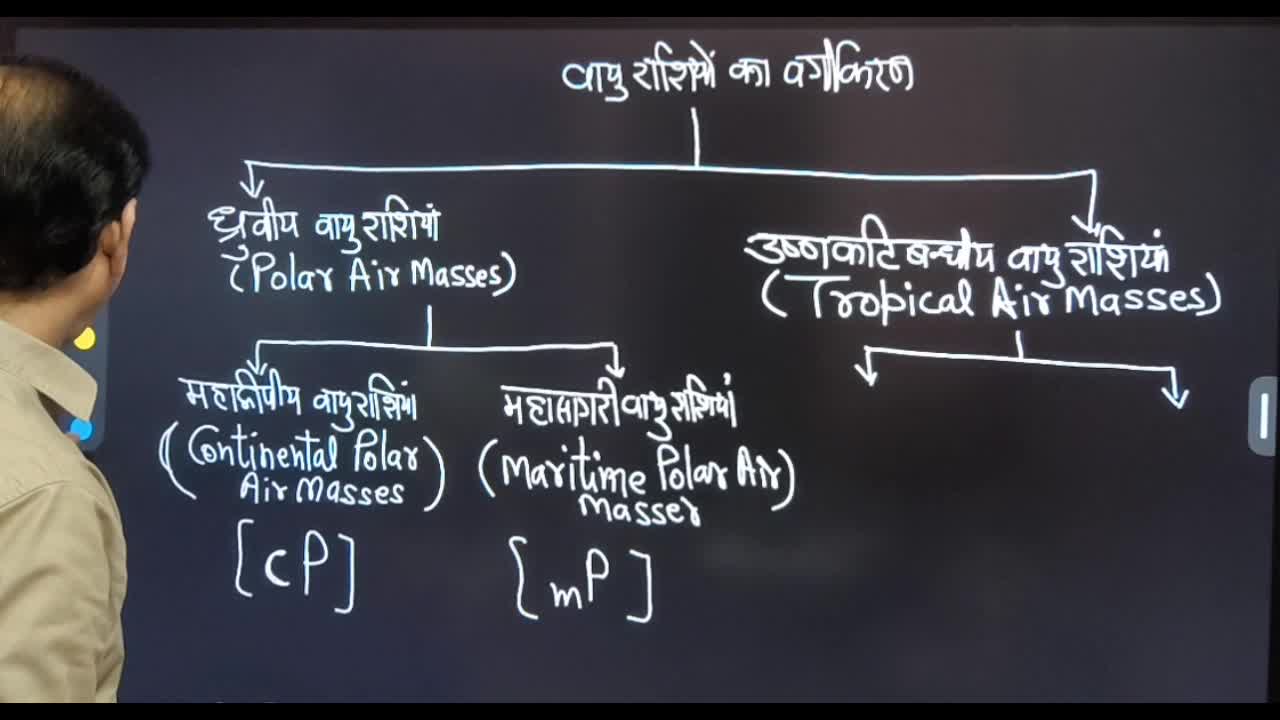 वायु राशियों का वर्गीकरण
ध्रुवीय वायु राशियां
(Polar Air Masses)
उष्णकटिबन्धीय वायु राशियां
(Tropical Air Masses)
महाद्वीपीय वायु राशियां
(Continental Polar
Air Masses)
[cP]
महासागरी वायु राशियां
(Maritime Polar Air)
Masses
[mP]